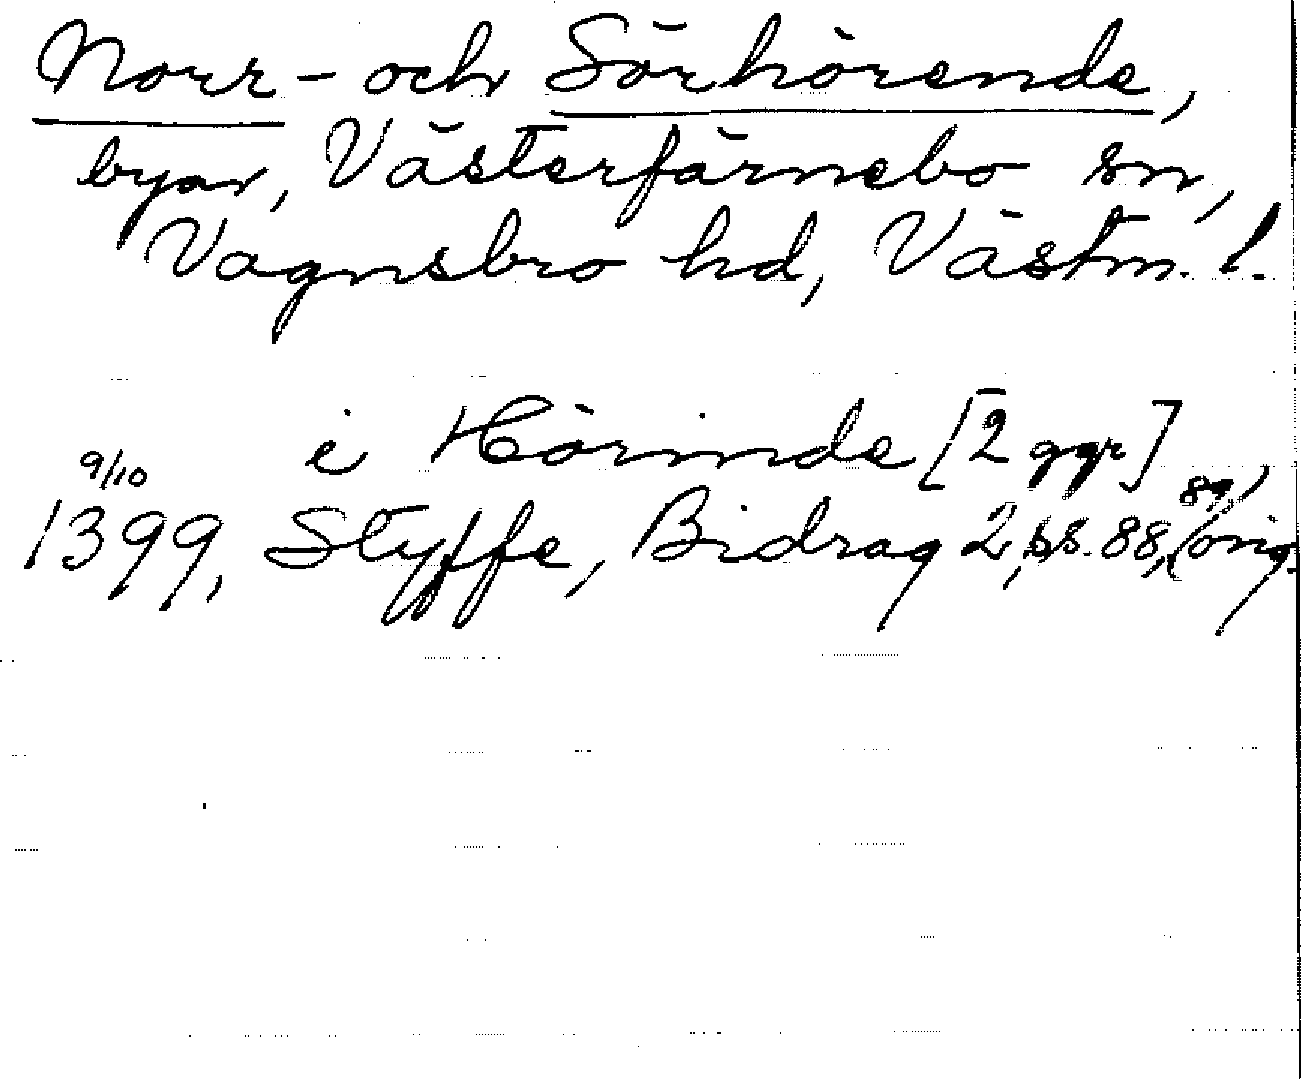 Norr- och Sörhörende,
byar, Västerfärnebo sn,
Vagnsbro hd, Västm. l.
i Hörinde [2 ggr]
9/10 1399, Styffe, Bidrag 2, ss. 88, 89, (orig.)